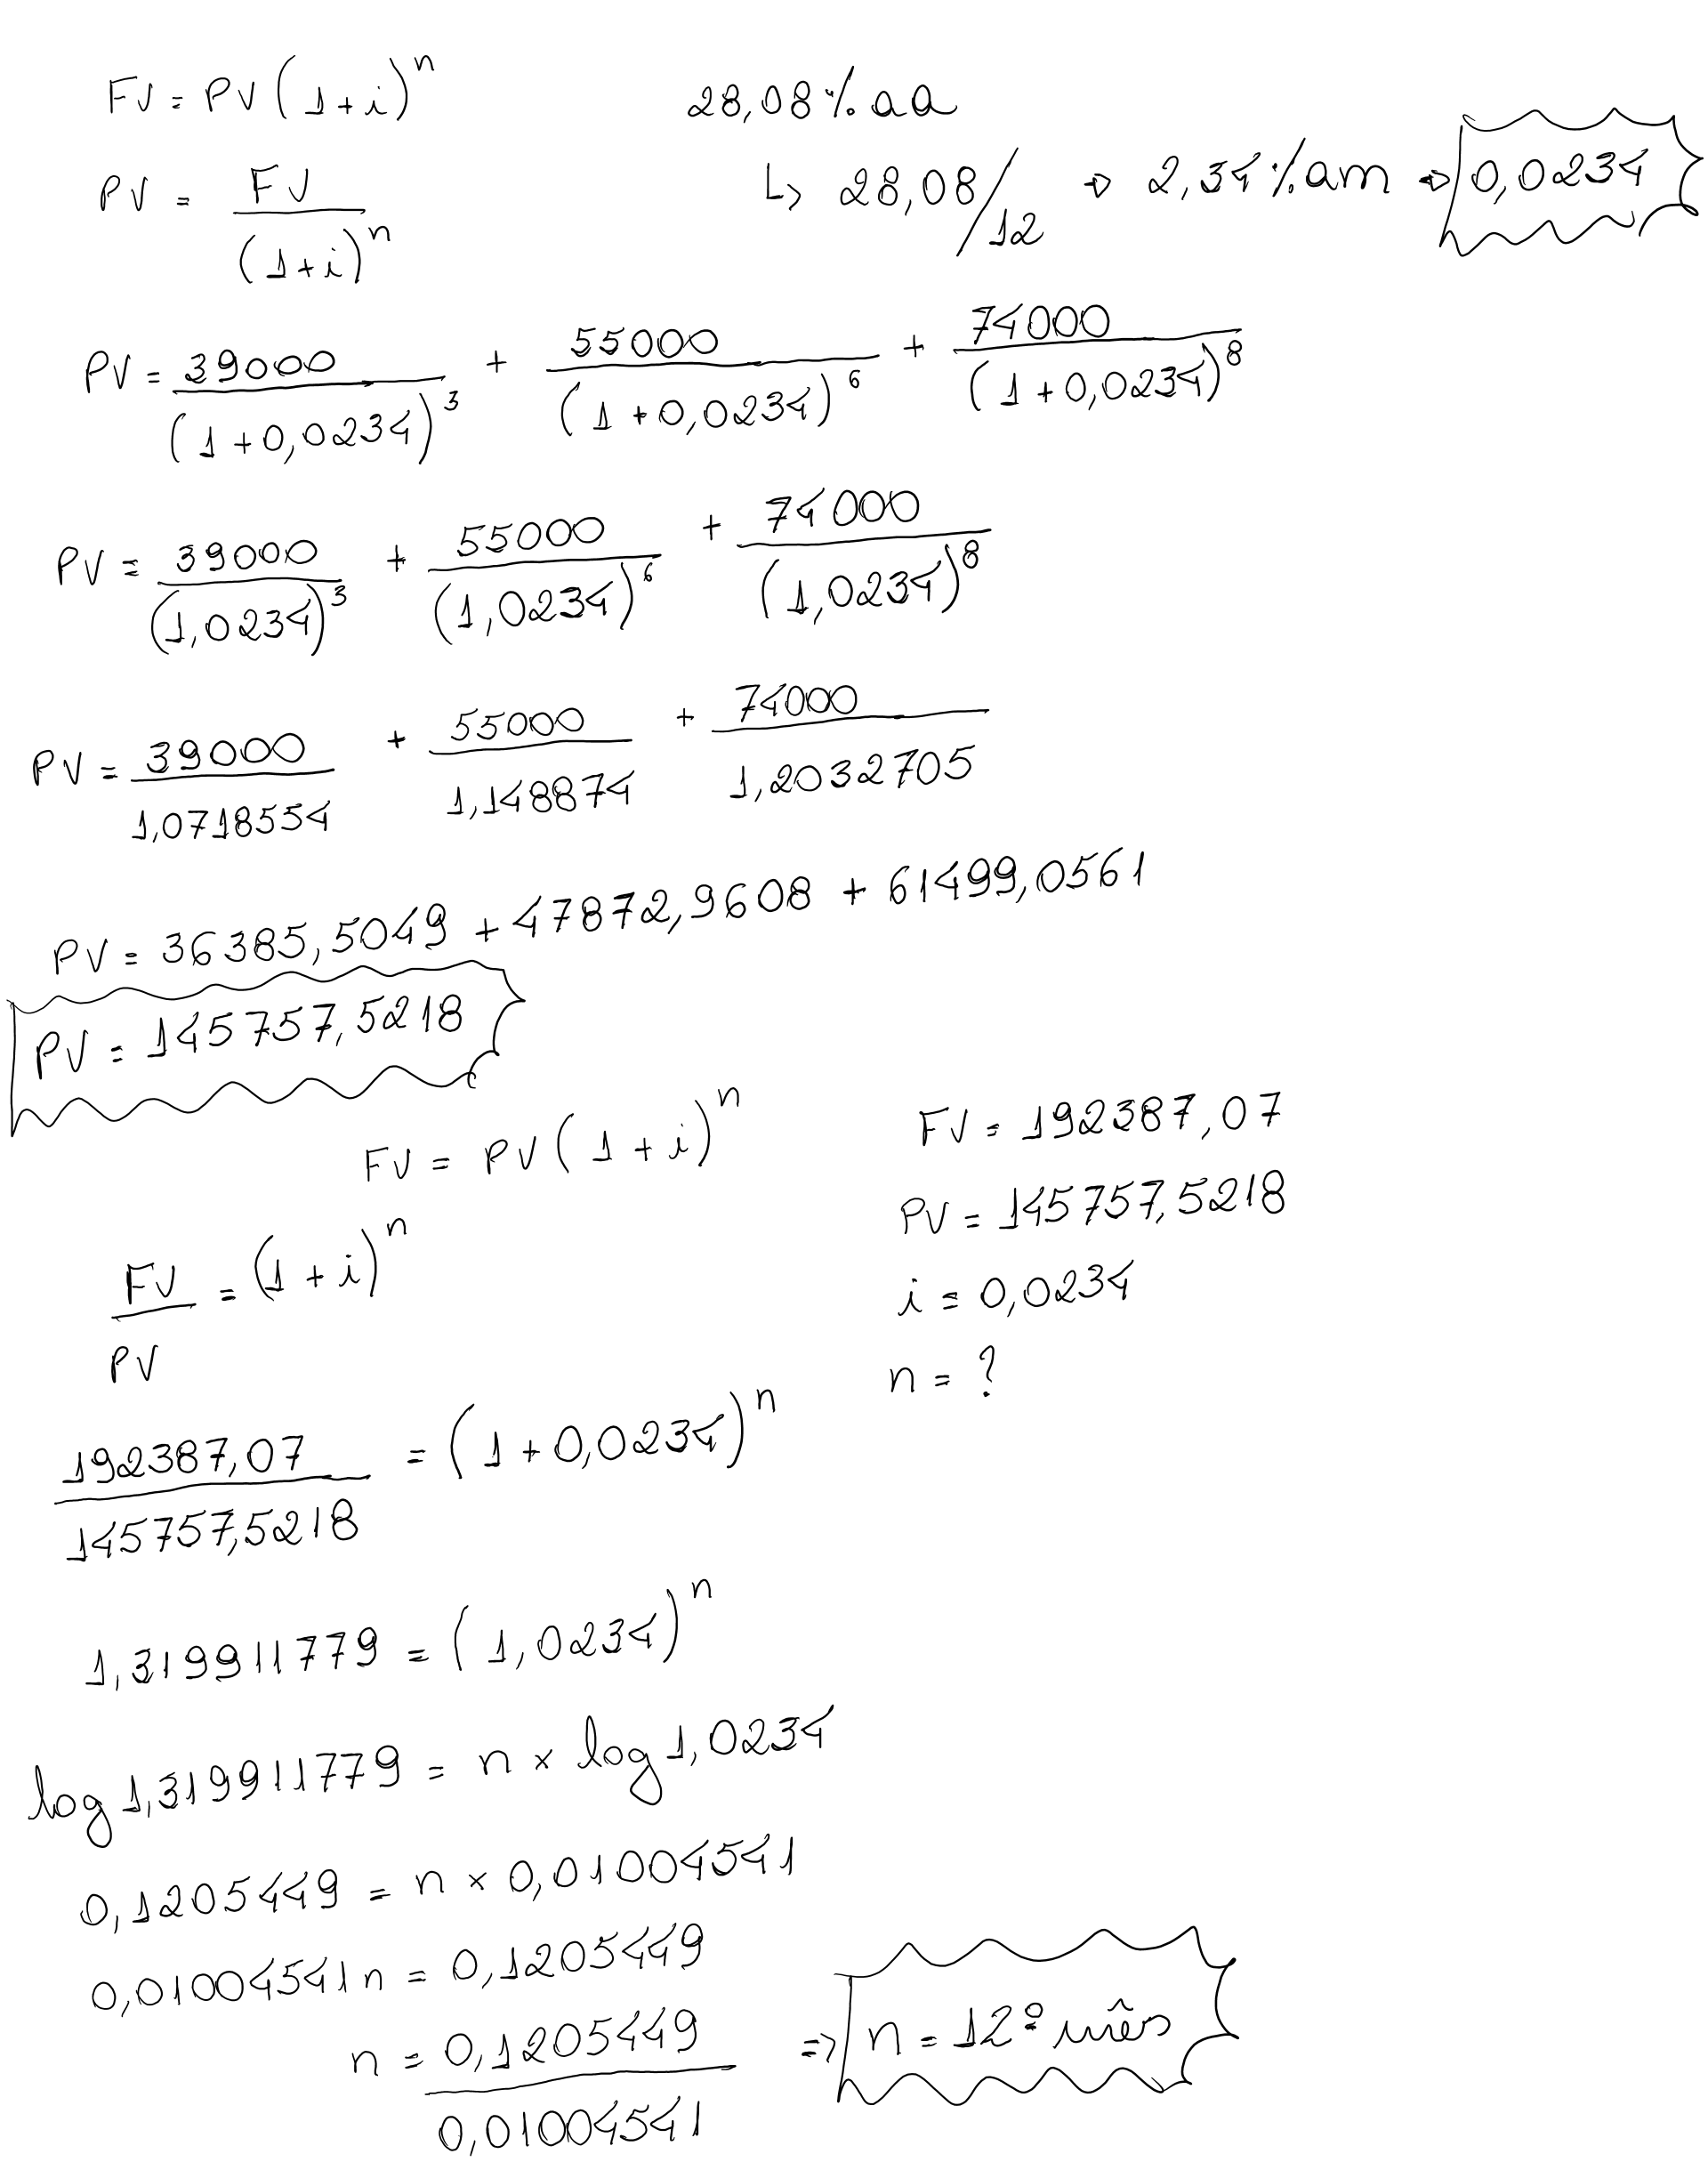 FV = PV (1+i)^n
28,08% aa
PV = FV / (1+i)^n
↳ 28,08/12 ⇒ 2,34% am ⇒ 0,0234
PV = 39000 / (1+0,0234)^3 + 55000 / (1+0,0234)^6 + 74000 / (1+0,0234)^8
PV = 39000 / (1,0234)^3 + 55000 / (1,0234)^6 + 74000 / (1,0234)^8
PV = 39000 / 1,0718554 + 55000 / 1,148874 + 74000 / 1,2032705
PV = 36385,5049 + 47872,9608 + 61499,0561
PV = 145757,5218
FV = PV (1+i)^n
FV / PV = (1+i)^n
FV = 192387,07
PV = 145757,5218
i = 0,0234
n = ?
192387,07 / 145757,5218 = (1+0,0234)^n
1,319911779 = (1,0234)^n
log 1,319911779 = n × log 1,0234
0,1205449 = n × 0,01004541
0,01004541n = 0,1205449
n = 0,1205449 / 0,01004541 ⇒ n = 12º mês